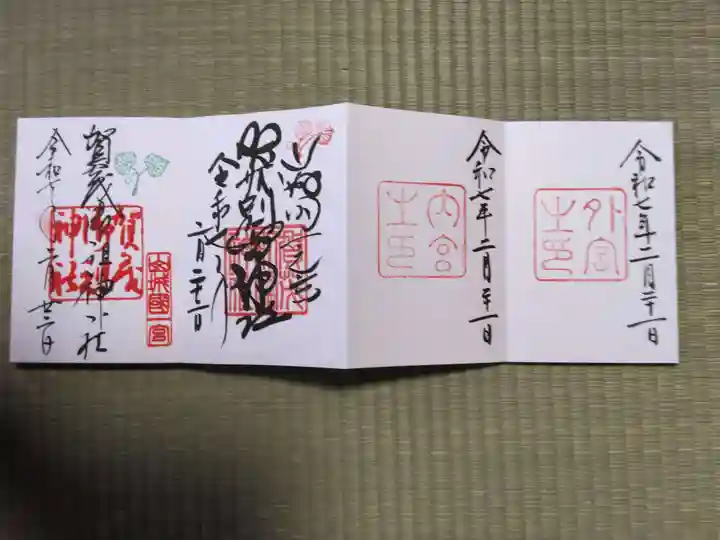 令和七年二月二十一日
外宮之印
令和七年二月二十一日
内宮之印
山城國一宮
賀茂別雷神社
令和七年
二月二十二日
山城國一宮
賀茂御祖神社
賀茂神社
令和七年二月廿二日